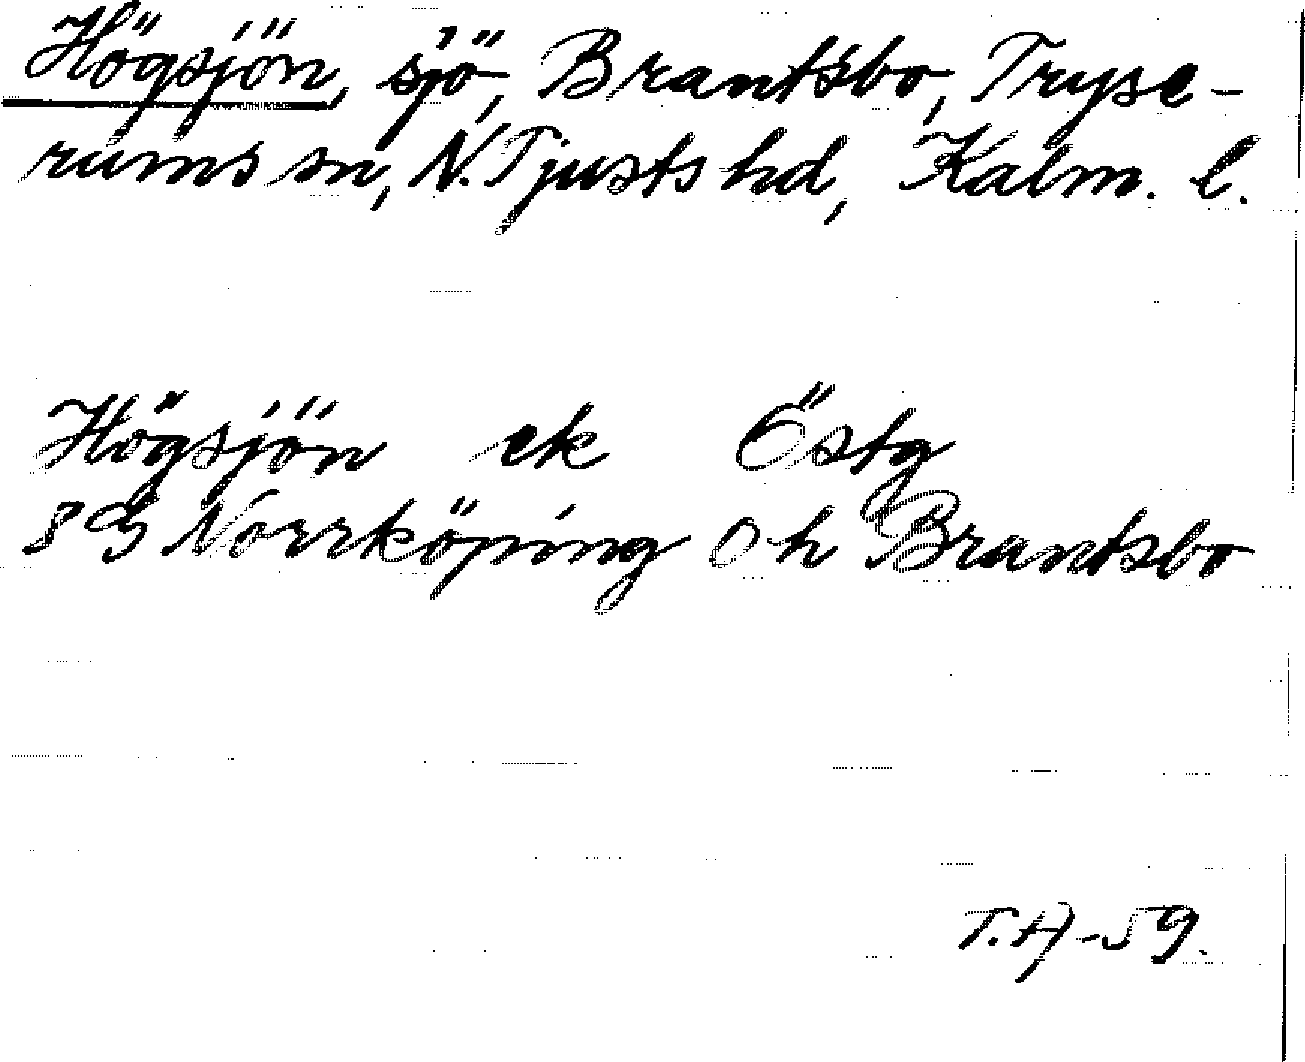 Högsjön, sjö, Brantsbo, Tryse-
rums sn, N. Tjusts hd, Kalm. l.
Högsjön ek Östg
8 G Norrköping Oh Brantsbo
T.H-59.